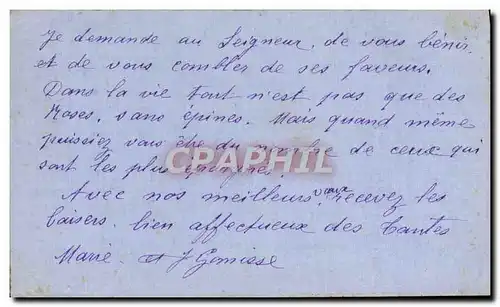 Je demande au Seigneur. de vous bénir.
et de vous combler de ses faveurs.
Dans la vie tout n'est pas que des
Roses. sans épines. Mais quand même
puissiez vous être du nombre de ceux qui
sont les plus épargnés
CPARPHIL
Avec nos meilleurs vœux recevez les
baisers. bien affectueux des tantes
Marie et J